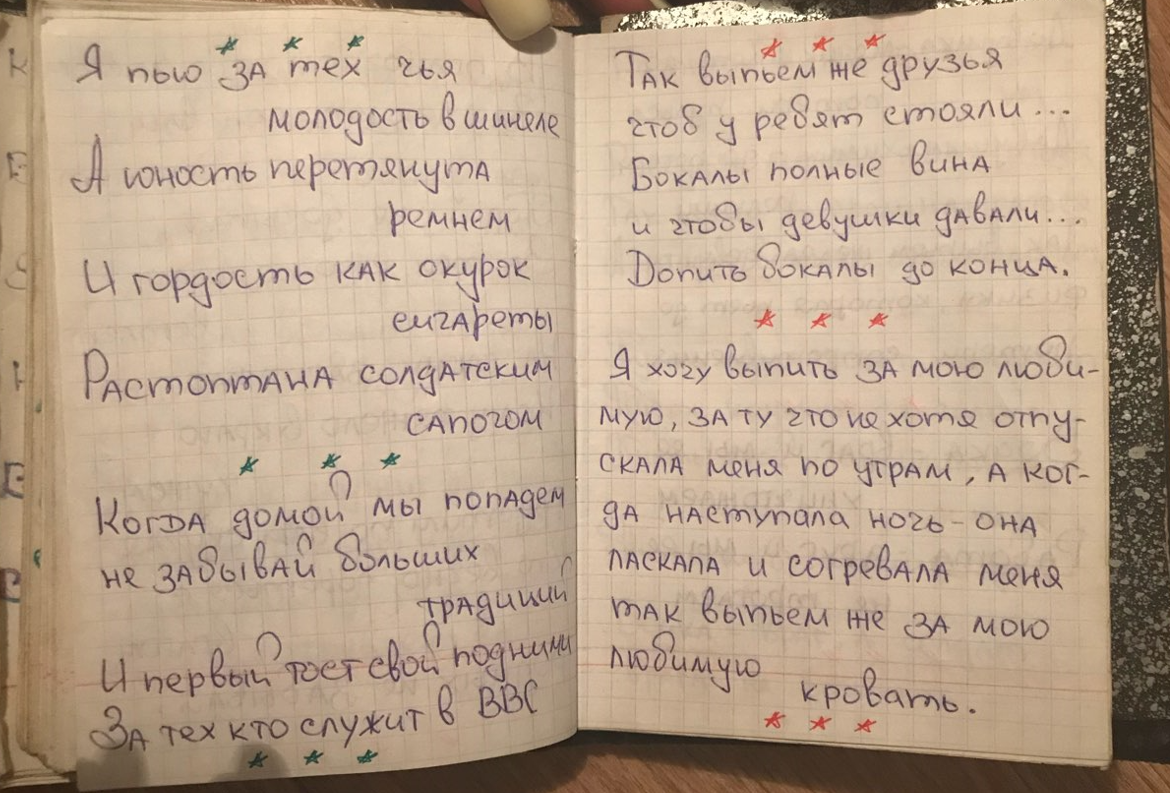 Я пью за тех чья
молодость в шинеле
А юность перетянута
ремнем
И гордость как окурок
сигареты
Растоптана солдатским
сапогом
Когда домой мы попадем
не забывай больших
традиций
И первый тост свой подними
За тех кто служит в ВВС
Так выпьем же друзья
чтоб у ребят стояли...
Бокалы полные вина
и чтобы девушки давали...
Допить бокалы до конца.
Я хочу выпить за мою люби-
мую, за ту что не хотя отпу-
скала меня по утрам, а ког-
да наступала ночь - она
ласкала и согревала меня
так выпьем же за мою
любимую
кровать.